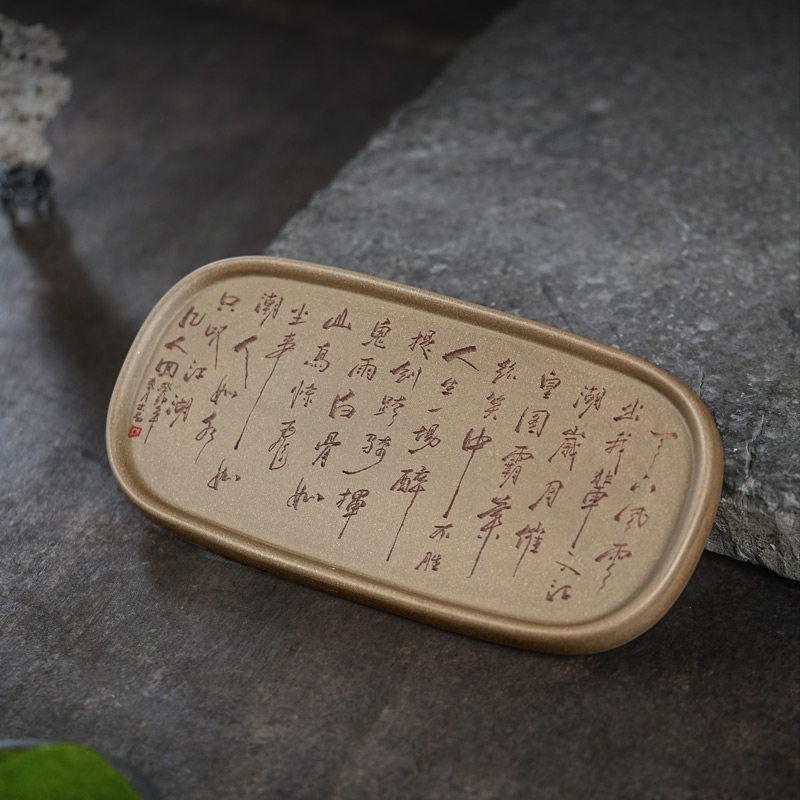 天下風雲
出我輩一入江
湖歲月催
皇图霸業
談笑中不胜
人生一場醉
提剑跨骑揮
鬼雨白骨如
山鳥惊飛
尘事如
潮人如水
只叹江湖
几人回